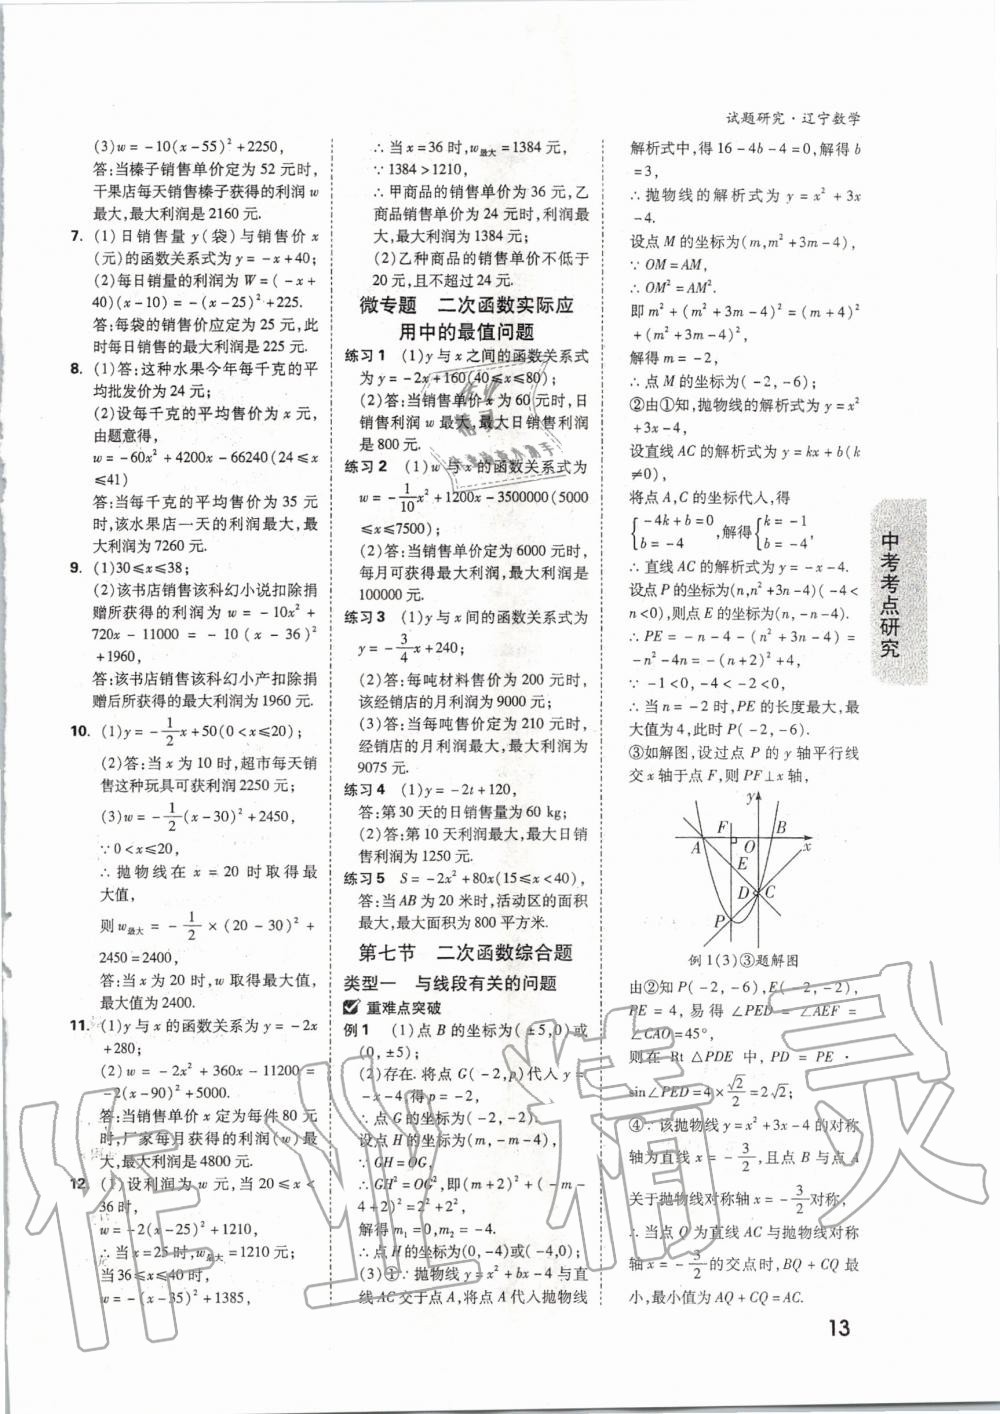 试题研究·辽宁数学
(3)w=-10(x-55)²+2250,
答:当榛子销售单价定为 52 元时,
干果店每天销售榛子获得的利润 w
最大,最大利润是 2160 元.
7. (1)日销售量 y(袋)与销售价 x
(元)的函数关系式为 y=-x+40;
(2)每日销量的利润为 W=(-x+
40)(x-10)=-(x-25)²+225.
答:每袋的销售价应定为 25 元,此
时每日销售的最大利润是 225 元.
8. (1)答:这种水果今年每千克的平
均批发价为 24 元;
(2)设每千克的平均售价为 x 元,
由题意得,
w=-60x²+4200x-66240(24≤x
≤41)
答:当每千克的平均售价为 35 元
时,该水果店一天的利润最大,最
大利润为 7260 元.
9. (1)30≤x≤38;
(2)该书店销售该科幻小说扣除捐
赠所获得的利润为 w=-10x²+
720x-11000=-10(x-36)²
+1960,
答:该书店销售该科幻小产扣除捐
赠后所获得的最大利润为 1960 元.
10. (1)y=-1/2x+50(0<x≤20);
(2)答:当 x 为 10 时,超市每天销
售这种玩具可获利润 2250 元;
(3)w=-1/2(x-30)²+2450,
∵0<x≤20,
∴抛物线在 x=20 时取得最
大值,
则 w最大=-1/2×(20-30)²+
2450=2400,
答:当 x 为 20 时,w 取得最大值,
最大值为 2400.
11. (1)y 与 x 的函数关系为 y=-2x
+280;
(2)w=-2x²+360x-11200=
-2(x-90)²+5000.
答:当销售单价 x 定为每件 80 元
时,厂家每月获得的利润(w)最
大,最大利润是 4800 元.
12. (1)设利润为 w 元,当 20≤x<
36时,
w=-2(x-25)²+1210,
∴当 x=25 时,w最大=1210 元;
当36≤x≤40 时,
w=-(x-35)²+1385,
∴当 x=36 时,w最大=1384 元,
∵1384>1210,
∴甲商品的销售单价为 36 元,乙
商品销售单价为 24 元时,利润最
大,最大利润为 1384 元;
(2)乙种商品销售单价不低于
20 元,且不超过 24 元.
微专题 二次函数实际应
用中的最值问题
练习 1 (1)y 与 x 之间的函数关系式
为 y=-2x+160(40≤x≤80);
(2)答:当销售单价为 60 元时,日
销售利润 w 最大,最大日销售利润
是 800 元.
练习 2 (1)w 与 x 的函数关系式为
w=-1/10x²+1200x-3500000(5000
≤x≤7500);
(2)答:当销售单价为 6000 元时,
每月可获得最大利润,最大利润是
100000 元.
练习 3 (1)y 与 x 间的函数关系式为
y=-3/4x+240;
(2)答:每吨材料售价为 200 元时,
该经销店的月利润为 9000 元.
(3)答:当每吨售价定为 210 元时,
经销店的月利润最大,最大利润为
9075 元.
练习 4 (1)y=-2t+120,
答:第 30 天的日销售量为 60 kg;
(2)答:第 10 天利润最大,最大日销
售利润为 1250 元.
练习 5 S=-2x²+80x(15≤x<40),
答:当 AB 为 20 米时,活动区的面积
最大,最大面积为 800 平方米.
第七节 二次函数综合题
类型一 与线段有关的问题
重难点突破
例 1 (1)点 B 的坐标为(±5,0)或
(0,±5);
(2)存在. 将点 G(-2,p)代人 y=
-x-4 得 p=-2,
∴点 G 的坐标为(-2,-2),
设点 H 的坐标为(m,-m-4),
∵GH=OG,
∴GH²=OG²,即(m+2)²+(-m-
4+2)²=2²+2²,
解得 m₁=0,m₂=-4.
∴点 H 的坐标为(0,-4)或(-4,0).
(3)①∵抛物线 y=x²+bx-4 与直
线 AC 交于点 A,将点 A 代入抛物线
解析式中,得 16-4b-4=0,解得 b
=3,
∴抛物线的解析式为 y=x²+3x
-4.
设点 M 的坐标为(m,m²+3m-4),
∵OM=AM,
∴OM²=AM².
即 m²+(m²+3m-4)²=(m+4)²
+(m²+3m-4)²,
解得 m=-2,
∴点 M 的坐标为(-2,-6);
②由①知,抛物线的解析式为 y=x²
+3x-4,
设直线 AC 的解析式为 y=kx+b(k
≠0),
将点 A,C 的坐标代人,得
{-4k+b=0, b=-4 ,解得{k=-1, b=-4
∴直线 AC 的解析式为 y=-x-4.
设点 P 的坐标为(n,n²+3n-4)(-4<
n<0),则点 E 的坐标为(n,-n-4).
∴PE=-n-4-(n²+3n-4)=
-n²-4n=-(n+2)²+4,
∵-1<0,-4<-2<0,
∴当 n=-2 时,PE 的长度最大,最
大值为 4,此时 P(-2,-6).
③如解图,设过点 P 的 y 轴平行线
交 x 轴于点 F,则 PF⊥x 轴,
y
F
B
A
O
x
E
D
C
P
例 1(3)③题解图
由②知 P(-2,-6),E(-2,-2),
PE=4,易得∠PED=∠AEF=
∠CAO=45°,
则在 Rt△PDE 中,PD=PE·
sin∠PED=4×√2/2=2√2;
④∵该抛物线 y=x²+3x-4 的对称
轴为直线 x=-3/2,且点 B 与点 A
关于抛物线对称轴 x=-3/2对称,
∴当点 Q 为直线 AC 与抛物线对称
轴 x=-3/2的交点时,BQ+CQ 最
小,最小值为 AQ+CQ=AC.
中考考点研究
13
作业精灵